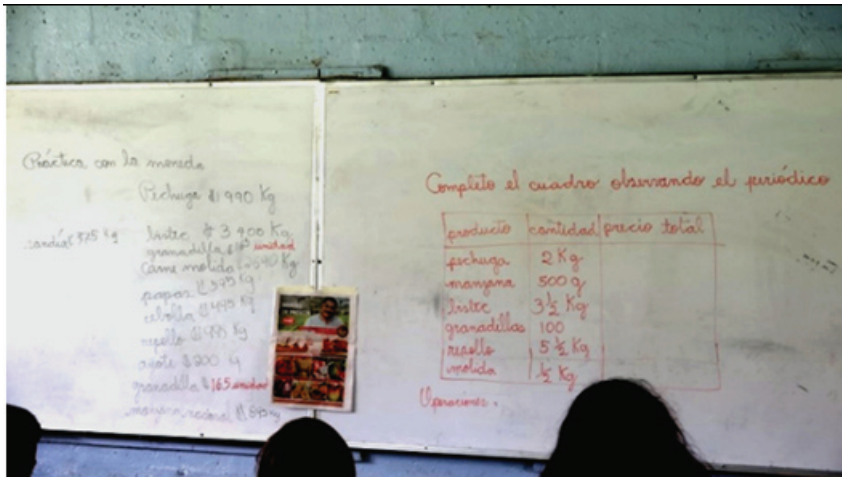 Práctica con la moneda
Pechuga ₡1 990 Kg
sandía ₡ 375 Kg
bistec ₡ 3 900 Kg
granadilla unidad
Carne molida Kg
papas ₡ 575 Kg
cebolla ₡ 495 Kg
repollo ₡ 995 Kg
ayote ₡ 200
granadilla ₡ 165 unidad
manzana nacional
Completo el cuadro observando el periódico
producto cantidad precio total
pechuga 2 Kg
manzana 500 g
bistec 3 ½ Kg
granadillas 100
repollo 5 ½ Kg
molida ½ Kg
Operaciones.